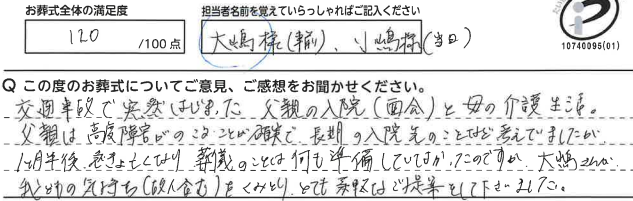 お葬式全体の満足度
担当者名前を覚えていらっしゃればご記入ください
120 /100点
大嶋様(事前)、小嶋様(当日)
10740095(01)
Q この度のお葬式についてご意見、ご感想をお聞かせください。
交通事故で突然はじまった父親の入院(面会)と母の介護生活。
父親は高度障害がのこることが確実で、長期の入院先のことなど考えていましたが、
1ヶ月半後、急きょ亡くなり葬儀のことは何も準備していなかったのですが、大嶋さんが、
私どもの気持ち(故人含む)をくみとり、とても素敵なご提案をして下さいました。